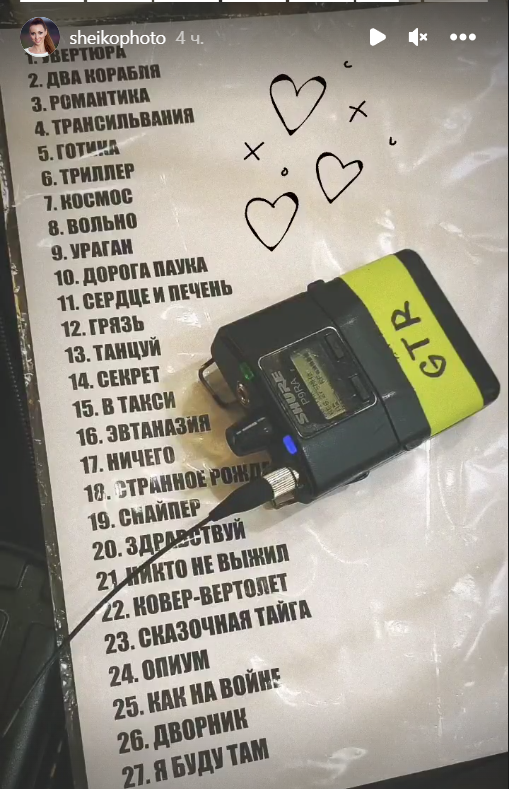 sheikophoto 4 ч.
1. УВЕРТЮРА
2. ДВА КОРАБЛЯ
3. РОМАНТИКА
4. ТРАНСИЛЬВАНИЯ
5. ГОТИКА
6. ТРИЛЛЕР
7. КОСМОС
8. ВОЛЬНО
9. УРАГАН
10. ДОРОГА ПАУКА
11. СЕРДЦЕ И ПЕЧЕНЬ
12. ГРЯЗЬ
13. ТАНЦУЙ
14. СЕКРЕТ
15. В ТАКСИ
16. ЭВТАНАЗИЯ
17. НИЧЕГО
18. СТРАННОЕ РОЖД
19. СНАЙПЕР
20. ЗДРАВСТВУЙ
21. НИКТО НЕ ВЫЖИЛ
22. КОВЕР-ВЕРТОЛЕТ
23. СКАЗОЧНАЯ ТАЙГА
24. ОПИУМ
25. КАК НА ВОЙНЕ
26. ДВОРНИК
27. Я БУДУ ТАМ
GTR
SHURE
P9RA